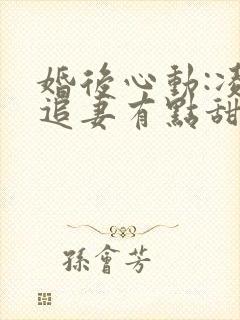 婚後心動:凌
追妻有點甜
孫會芳